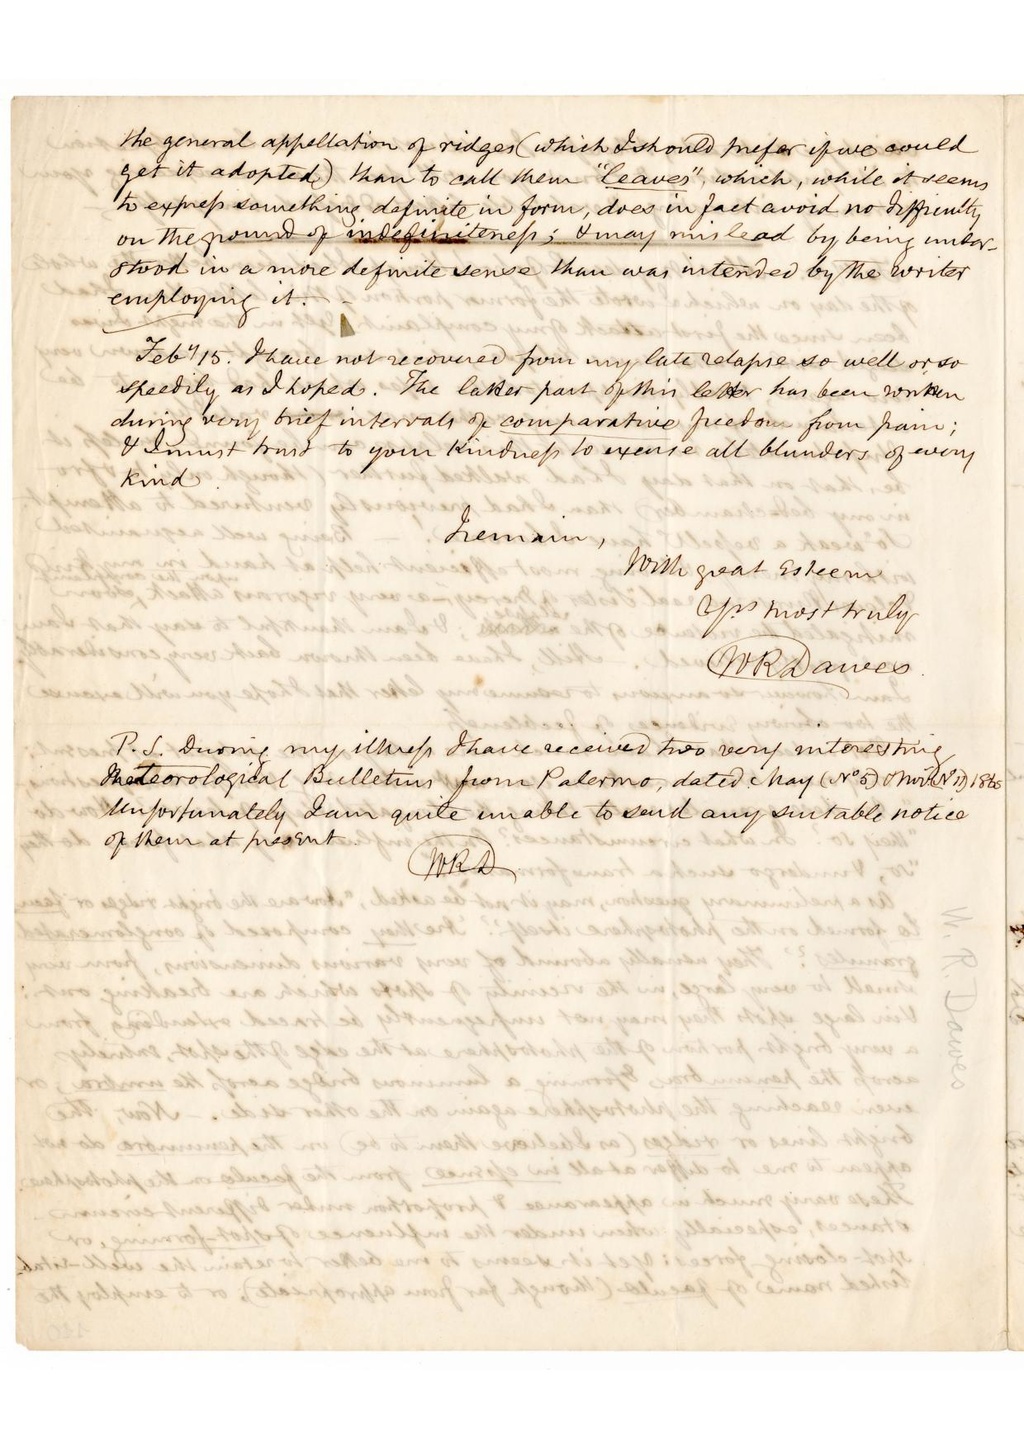 the general appellation of ridges (which I should prefer if we could
get it adopted) than to call them "leaves", which, while it seems
to express something definite in form, does in fact avoid no difficulty
on the ground of indefiniteness; & may mislead by being under-
stood in a more definite sense than was intended by the writer
employing it. –
Feby 15. I have not recovered from my late relapse so well or so
speedily as I hoped. The latter part of this letter has been written
during very brief intervals of comparative freedom from pain;
& I must trust to your kindness to excuse all blunders of every
kind
I remain,
With great Esteem
Yrs most truly
WR Dawes.
P.S. During my illness I have received two very interesting
Meteorological Bulletins from Palermo, dated May (No 5) & (No 11) 1865
Unfortunately I am quite unable to send any suitable notice
of them at present
WRD
W. R. Dawes